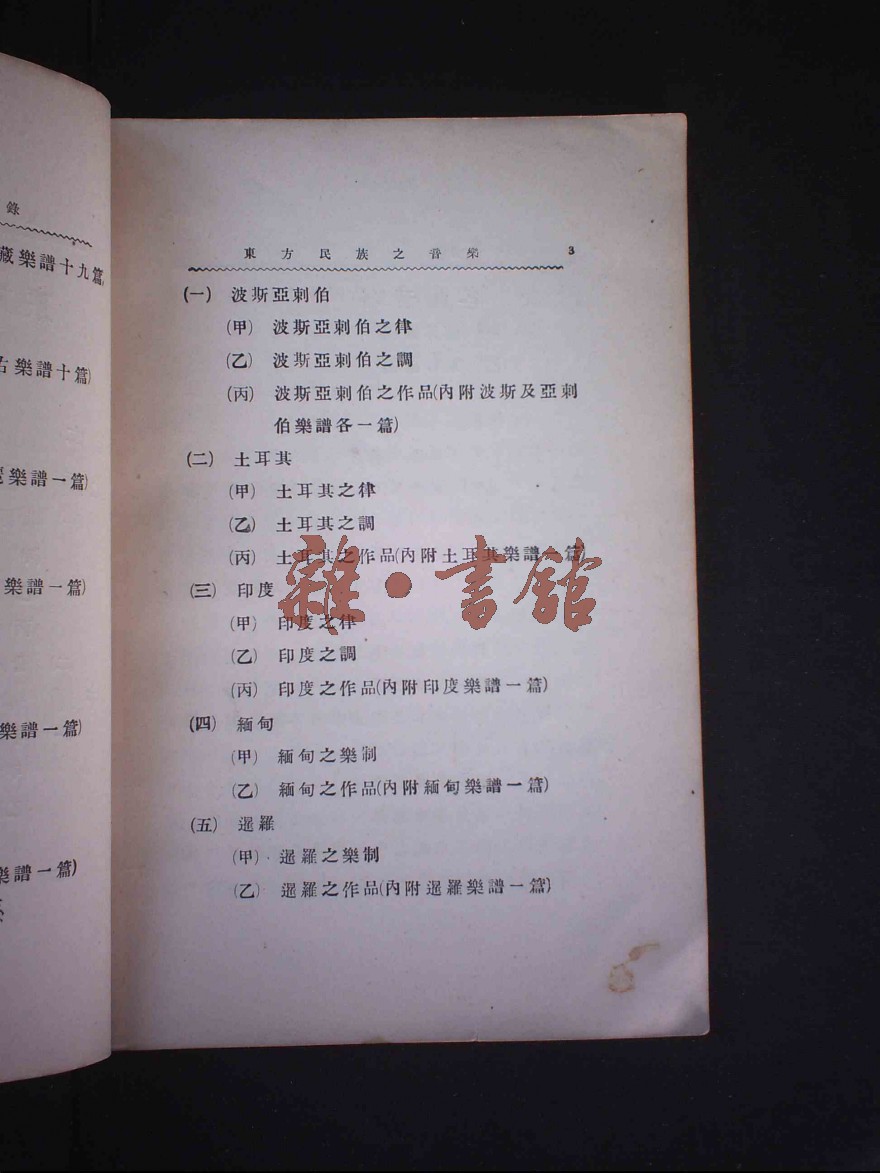 錄
藏樂譜十九篇)
古樂譜十篇)
樂譜一篇)
樂譜一篇)
樂譜一篇)
樂譜一篇)
東方民族之音樂 3
(一) 波斯亞剌伯
(甲) 波斯亞剌伯之律
(乙) 波斯亞剌伯之調
(丙) 波斯亞剌伯之作品(內附波斯及亞剌
伯樂譜各一篇)
(二) 土耳其
(甲) 土耳其之律
(乙) 土耳其之調
(丙) 土耳其之作品(內附土耳其樂譜一篇)
(三) 印度
(甲) 印度之律
(乙) 印度之調
(丙) 印度之作品(內附印度樂譜一篇)
(四) 緬甸
(甲) 緬甸之樂制
(乙) 緬甸之作品(內附緬甸樂譜一篇)
(五) 暹羅
(甲) 暹羅之樂制
(乙) 暹羅之作品(內附暹羅樂譜一篇)
雜·書館